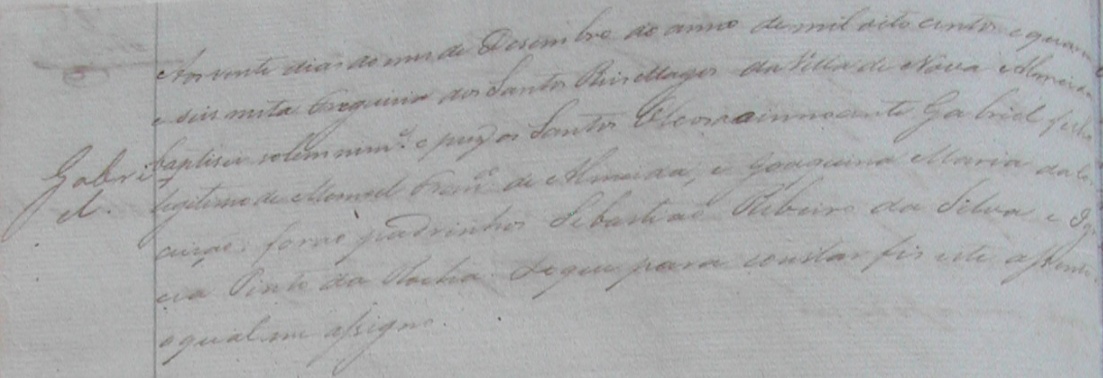 Aos vinte dias do mes de Desembro do anno de mil oito centos e quaren
e seis nesta Freguisia dos Santos Reis Magos da Villa de Nova Almeida
baptisei solemnem.e e puz os Santos Oleos a innocente Gabriel filho
Gabri
el.
legitimo de Manoel Fran.co de Almeida, e Joaquina Maria da Con
ceição: forão padrinhos Sebastião Ribeiro da Silva e Ig
cia Pinto da Rocha. De que para constar fis este assento
o qual me assigno.